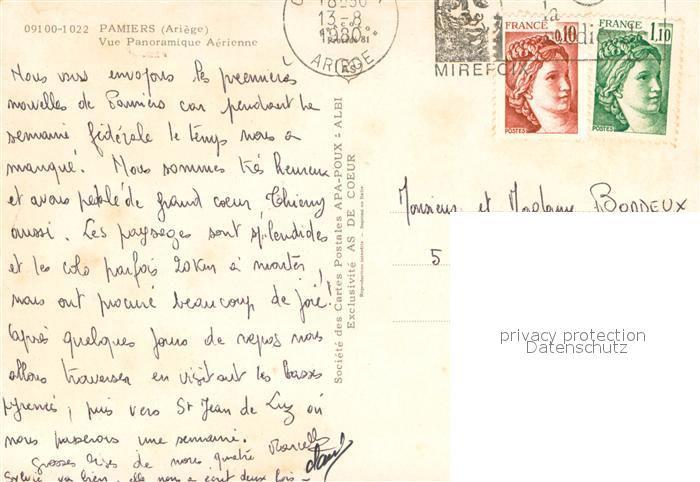 09100-1022 PAMIERS (Ariège)
Vue Panoramique Aérienne
13-8
1980
MIREPOIX
FRANCE
0,10
POSTES
FRANCE
1,10
POSTES
Nous vous envoyons les premières
nouvelles de Pamiers car pendant la
semaine fédérale le temps nous a
manqué. Nous sommes très heureux
et avons pédalé de grand coeur Thierry
aussi. Les paysages sont splendides
et les cols parfois 20 km à monter,
mais ont procuré beaucoup de joie!
Après quelques jours de repos nous
allons traverser en visitant les basses
pyrénées, puis vers St Jean de Luz où
nous passerons une semaine.
grosses bises de nous quatre
Sylvie va bien, elle nous a écrit deux fois -
Société des Cartes Postales APA-POUX - ALBI
Exclusivité AS DE COEUR
Reproduction interdite
Monsieur et Madame BORDEUX
5
privacy protection
Datenschutz